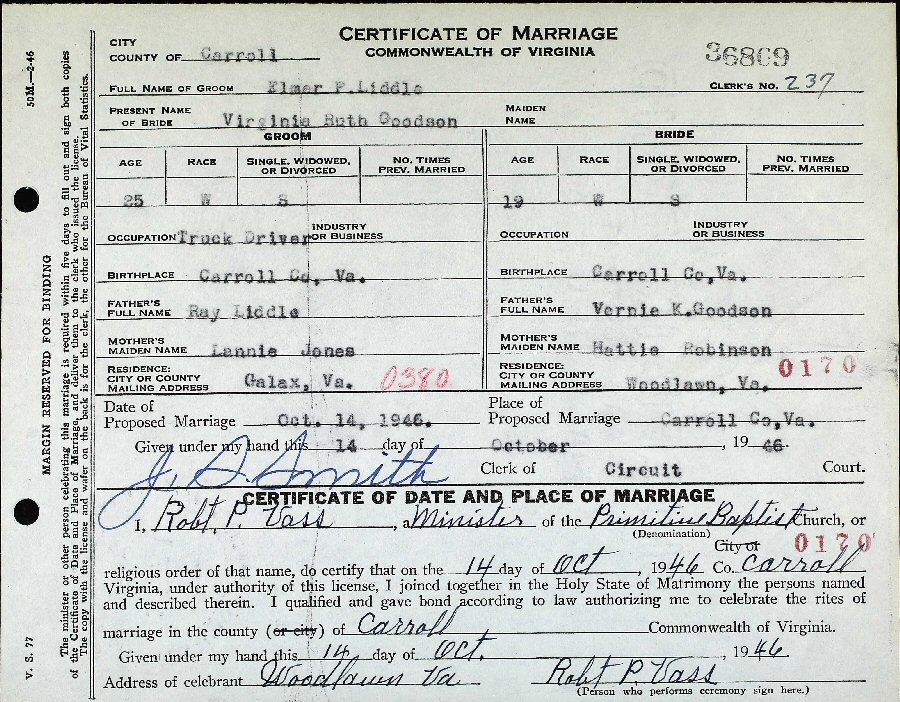 CERTIFICATE OF MARRIAGE
COMMONWEALTH OF VIRGINIA
36809
CITY
COUNTY OF Carroll
FULL NAME OF GROOM Elmer P. Liddle CLERK'S NO. 237
PRESENT NAME OF BRIDE Virginia Ruth Goodson MAIDEN NAME
GROOM BRIDE
AGE RACE SINGLE, WIDOWED, OR DIVORCED NO. TIMES PREV. MARRIED AGE RACE SINGLE, WIDOWED, OR DIVORCED NO. TIMES PREV. MARRIED
25 W S 19 W S
OCCUPATION Truck Driver INDUSTRY OR BUSINESS OCCUPATION INDUSTRY OR BUSINESS
BIRTHPLACE Carroll Co, Va. BIRTHPLACE Carroll Co,Va.
FATHER'S FULL NAME Ray Liddle FATHER'S FULL NAME Vernie K.Goodson
MOTHER'S MAIDEN NAME Lannie Jones MOTHER'S MAIDEN NAME Hattie Robinson
RESIDENCE: CITY OR COUNTY MAILING ADDRESS Galax, Va. 0380 RESIDENCE: CITY OR COUNTY MAILING ADDRESS Woodlawn, Va. 0170
Date of Proposed Marriage Oct. 14, 1946. Place of Proposed Marriage Carroll Co,Va.
Given under my hand this 14 day of October, 19 46.
J. D. Smith Clerk of Circuit Court.
CERTIFICATE OF DATE AND PLACE OF MARRIAGE
I, Robt. P. Vass, a Minister of the Primitive Baptist Church, or
(Denomination) City of 0170
religious order of that name, do certify that on the 14 day of Oct, 1946 Co. Carroll
Virginia, under authority of this license, I joined together in the Holy State of Matrimony the persons named
and described therein. I qualified and gave bond according to law authorizing me to celebrate the rites of
marriage in the county (or city) of Carroll Commonwealth of Virginia.
Given under my hand this 14 day of Oct. , 1946
Address of celebrant Woodlawn Va Robt P. Vass
(Person who performs ceremony sign here.)
50M.—2-46
MARGIN RESERVED FOR BINDING
V. S. 77
The minister or other person celebrating this marriage is required within five days to fill out and sign both copies
of the Certificate of Date and Place of Marriage, and deliver them to the clerk who issued the license.
The copy with the license and wafer on the back is for the clerk, the other for the Bureau of Vital Statistics.